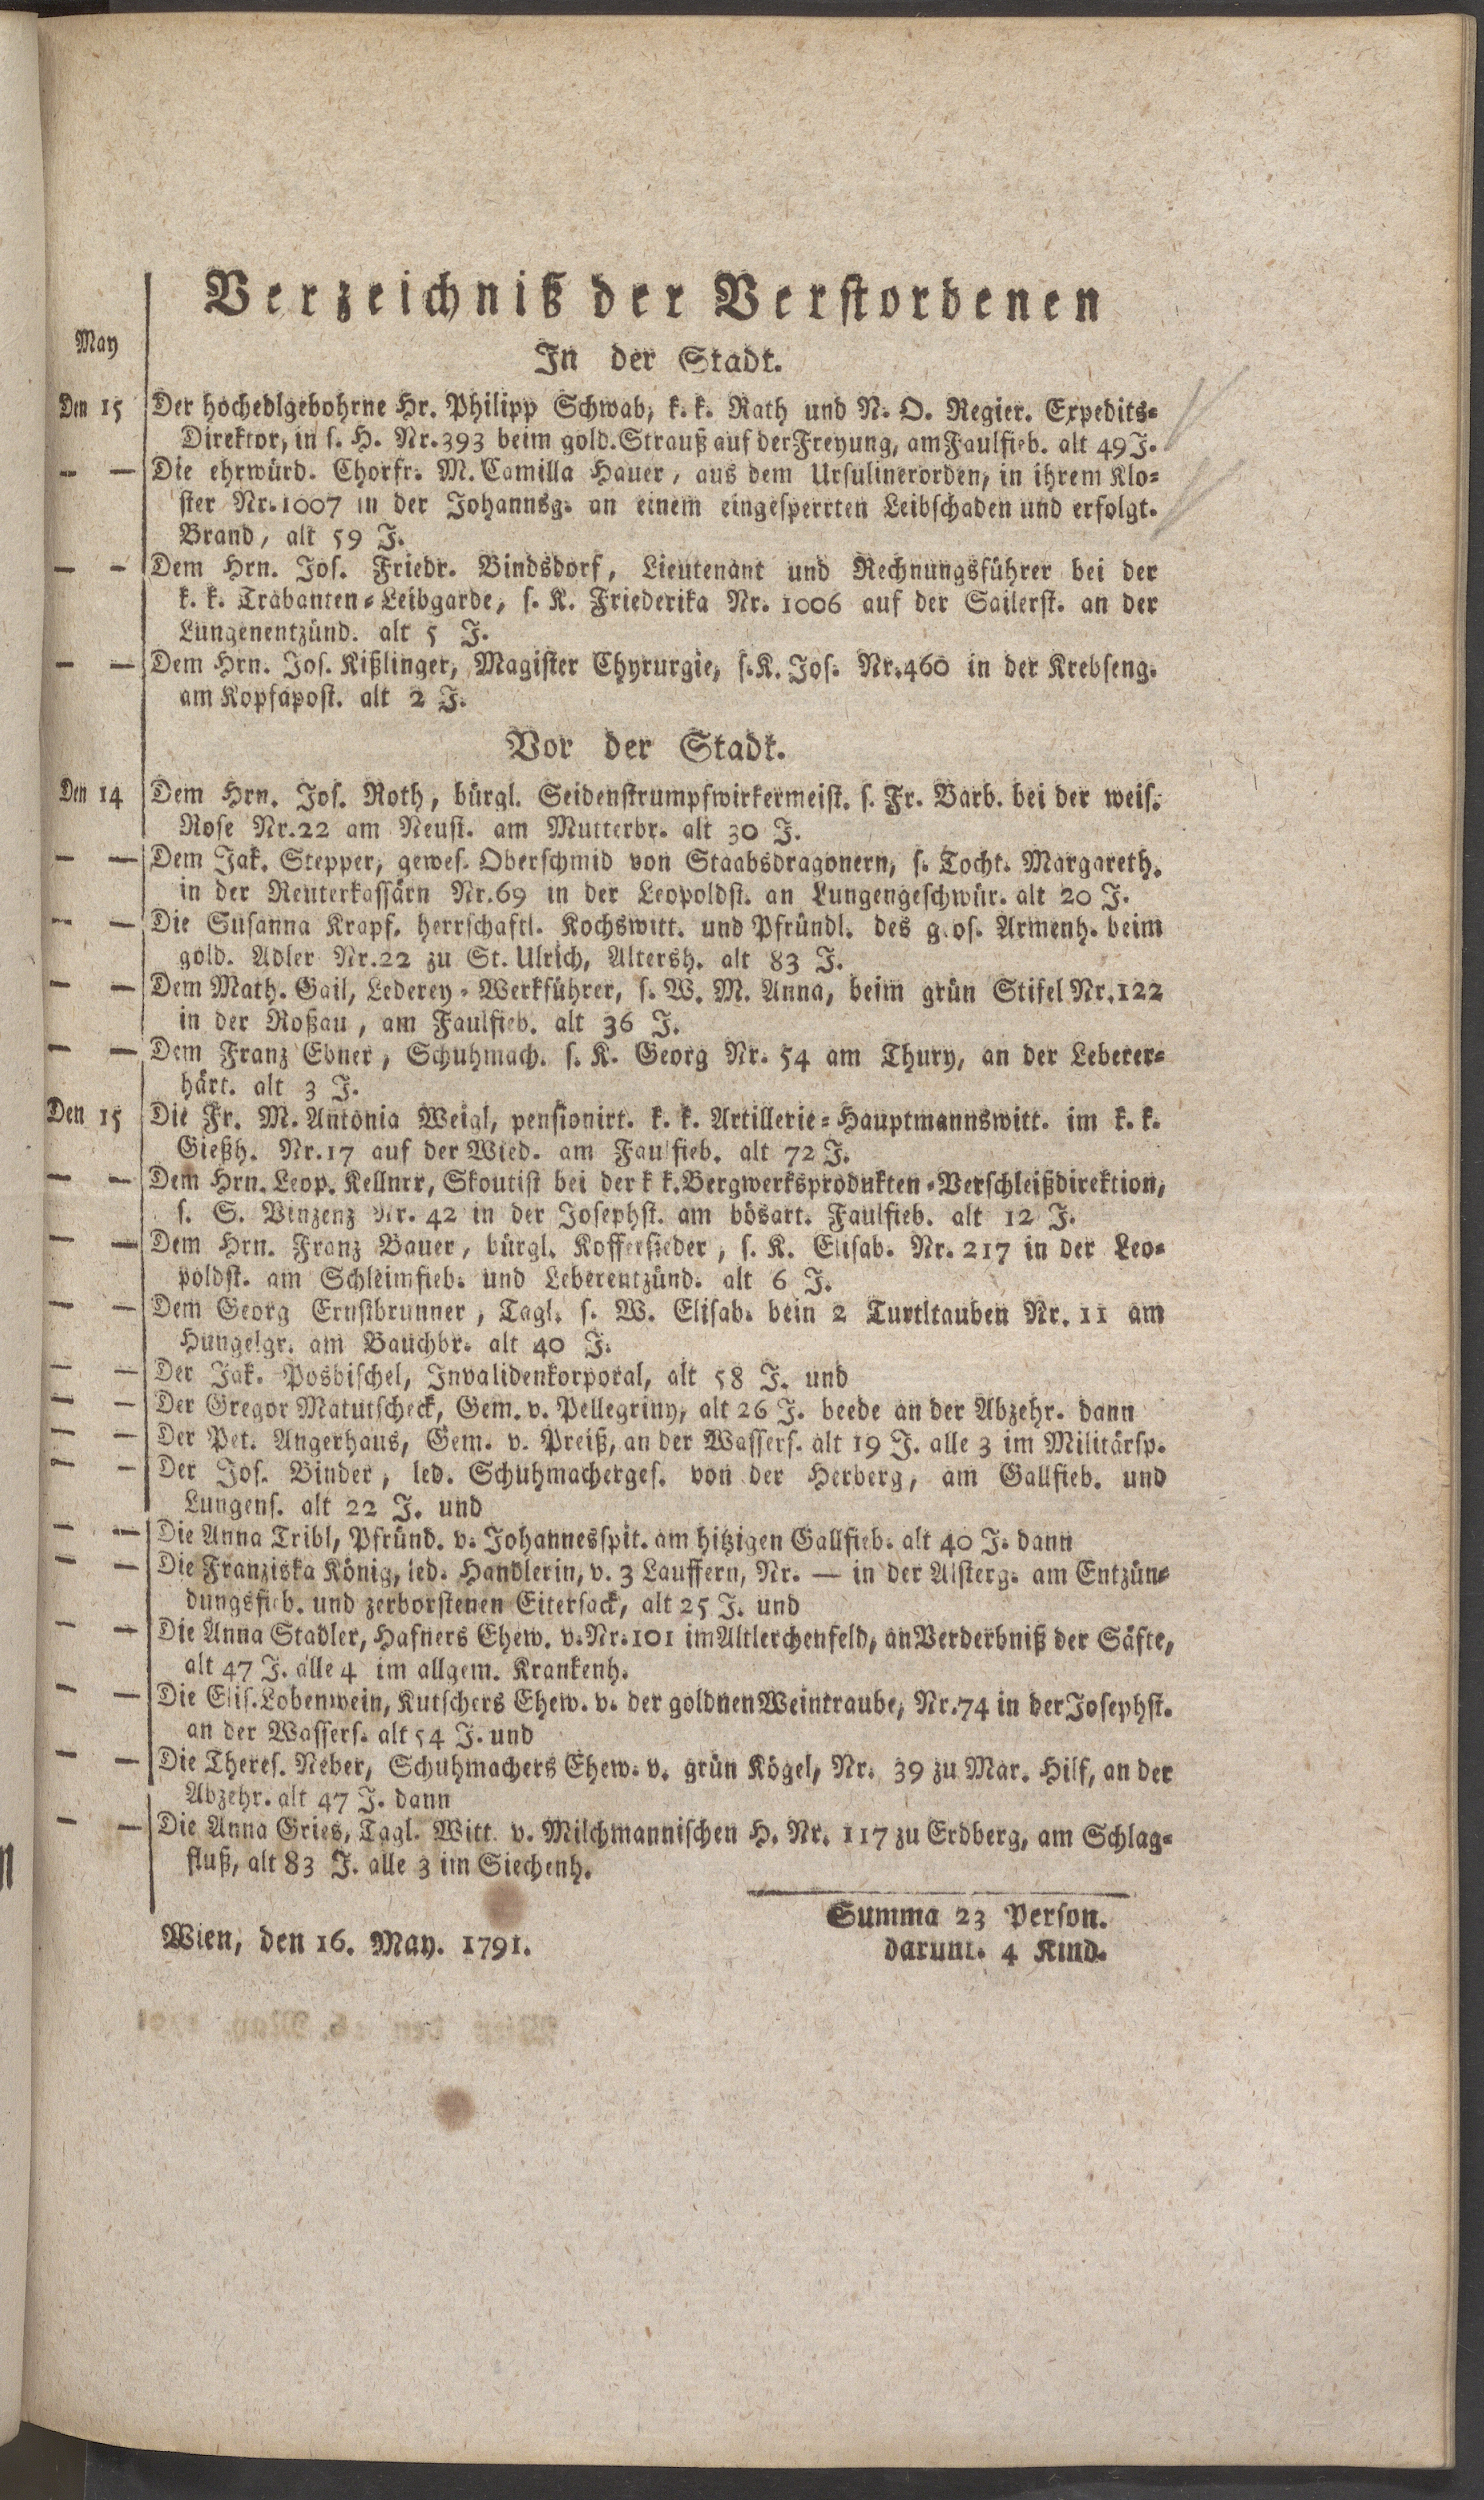 Verzeichniß der Verstordenen
May
In der Stadt.
Den 15 Der hochedlgebohrne Hr. Philipp Schwab, k. k. Rath und N. O. Regier. Expedits-
Direktor, in s. H. Nr. 393 beim gold. Strauß auf der Freyung, am Faulfieb. alt 49 J.
— — Die ehrwürd. Chorfr. M. Camilla Hauer, aus dem Ursulinerorden, in ihrem Klo-
ster Nr. 1007 in der Johannsg. an einem eingesperrten Leibschaden und erfolgt.
Brand, alt 59 J.
— — Dem Hrn. Jos. Friedr. Bindsdorf, Lieutenant und Rechnungsführer bei der
k. k. Trabanten-Leibgarde, s. K. Friederika Nr. 1006 auf der Sailerst. an der
Lungenentzünd. alt 5 J.
— — Dem Hrn. Jos. Kißlinger, Magister Chyrurgie, s. K. Jos. Nr. 460 in der Krebseng.
am Kopfapost. alt 2 J.
Vor der Stadt.
Den 14 Dem Hrn. Jos. Roth, bürgl. Seidenstrumpfwirkermeist. s. Fr. Barb. bei der weis.
Rose Nr. 22 am Neust. am Mutterbr. alt 30 J.
— — Dem Jak. Stepper, gewes. Oberschmid von Staabsdragonern, s. Tocht. Margareth.
in der Reuterkassärn Nr. 69 in der Leopoldst. an Lungengeschwür. alt 20 J.
— — Die Susanna Krapf. herrschaftl. Kochswitt. und Pfründl. des g os. Armenh. beim
gold. Adler Nr. 22 zu St. Ulrich, Altersh. alt 83 J.
— — Dem Math. Gail, Lederey-Werkführer, s. W. M. Anna, beim grün Stifel Nr. 122
in der Roßau, am Faulfieb. alt 36 J.
— — Dem Franz Ebner, Schuhmach. s. K. Georg Nr. 54 am Thury, an der Leberer-
härt. alt 3 J.
Den 15 Die Fr. M. Antonia Weigl, pensionirt. k. k. Artillerie-Hauptmannswitt. im k. k.
Gießh. Nr. 17 auf der Wied. am Faulfieb. alt 72 J.
— — Dem Hrn. Leop. Kellner, Skoutist bei der k k. Bergwerksprodukten-Verschleißdirektion,
s. S. Vinzenz Nr. 42 in der Josephst. am bösart. Faulfieb. alt 12 J.
— — Dem Hrn. Franz Bauer, bürgl. Koffeesieder, s. K. Elisab. Nr. 217 in der Leo-
poldst. am Schleimfieb. und Leberentzünd. alt 6 J.
— — Dem Georg Ernstbrunner, Tagl. s. W. Elisab. bein 2 Turtltauben Nr. 11 am
Hungelgr. am Bauchbr. alt 40 J.
— — Der Jak. Posbischel, Invalidenkorporal, alt 58 J. und
— — Der Gregor Matutscheck, Gem. v. Pellegriny, alt 26 J. beede an der Abzehr. dann
— — Der Pet. Angerhaus, Gem. v. Preiß, an der Wassers. alt 19 J. alle 3 im Militärsp.
— — Der Jos. Binder, led. Schuhmacherges. von der Herberg, am Gallfieb. und
Lungens. alt 22 J. und
— — Die Anna Tribl, Pfründ. v. Johannesspit. am hitzigen Gallfieb. alt 40 J. dann
— — Die Franziska König, led. Handlerin, v. 3 Lauffern, Nr. — in der Alsterg. am Entzün-
dungsfieb. und zerborstenen Eitersack, alt 25 J. und
— — Die Anna Stadler, Hafners Ehew. v. Nr. 101 im Altlerchenfeld, an Verderbniß der Säfte,
alt 47 J. alle 4 im allgem. Krankenh.
— — Die Elis. Lobenwein, Kutschers Ehew. v. der goldnen Weintraube, Nr. 74 in der Josephst.
an der Wassers. alt 54 J. und
— — Die Theres. Neber, Schuhmachers Ehew. v. grün Kögel, Nr. 39 zu Mar. Hilf, an der
Abzehr. alt 47 J. dann
— — Die Anna Gries, Tagl. Witt. v. Milchmannischen H. Nr. 117 zu Erdberg, am Schlag-
fluß, alt 83 J. alle 3 im Siechenh.
Summa 23 Person.
darunt. 4 Kind.
Wien, den 16. May. 1791.